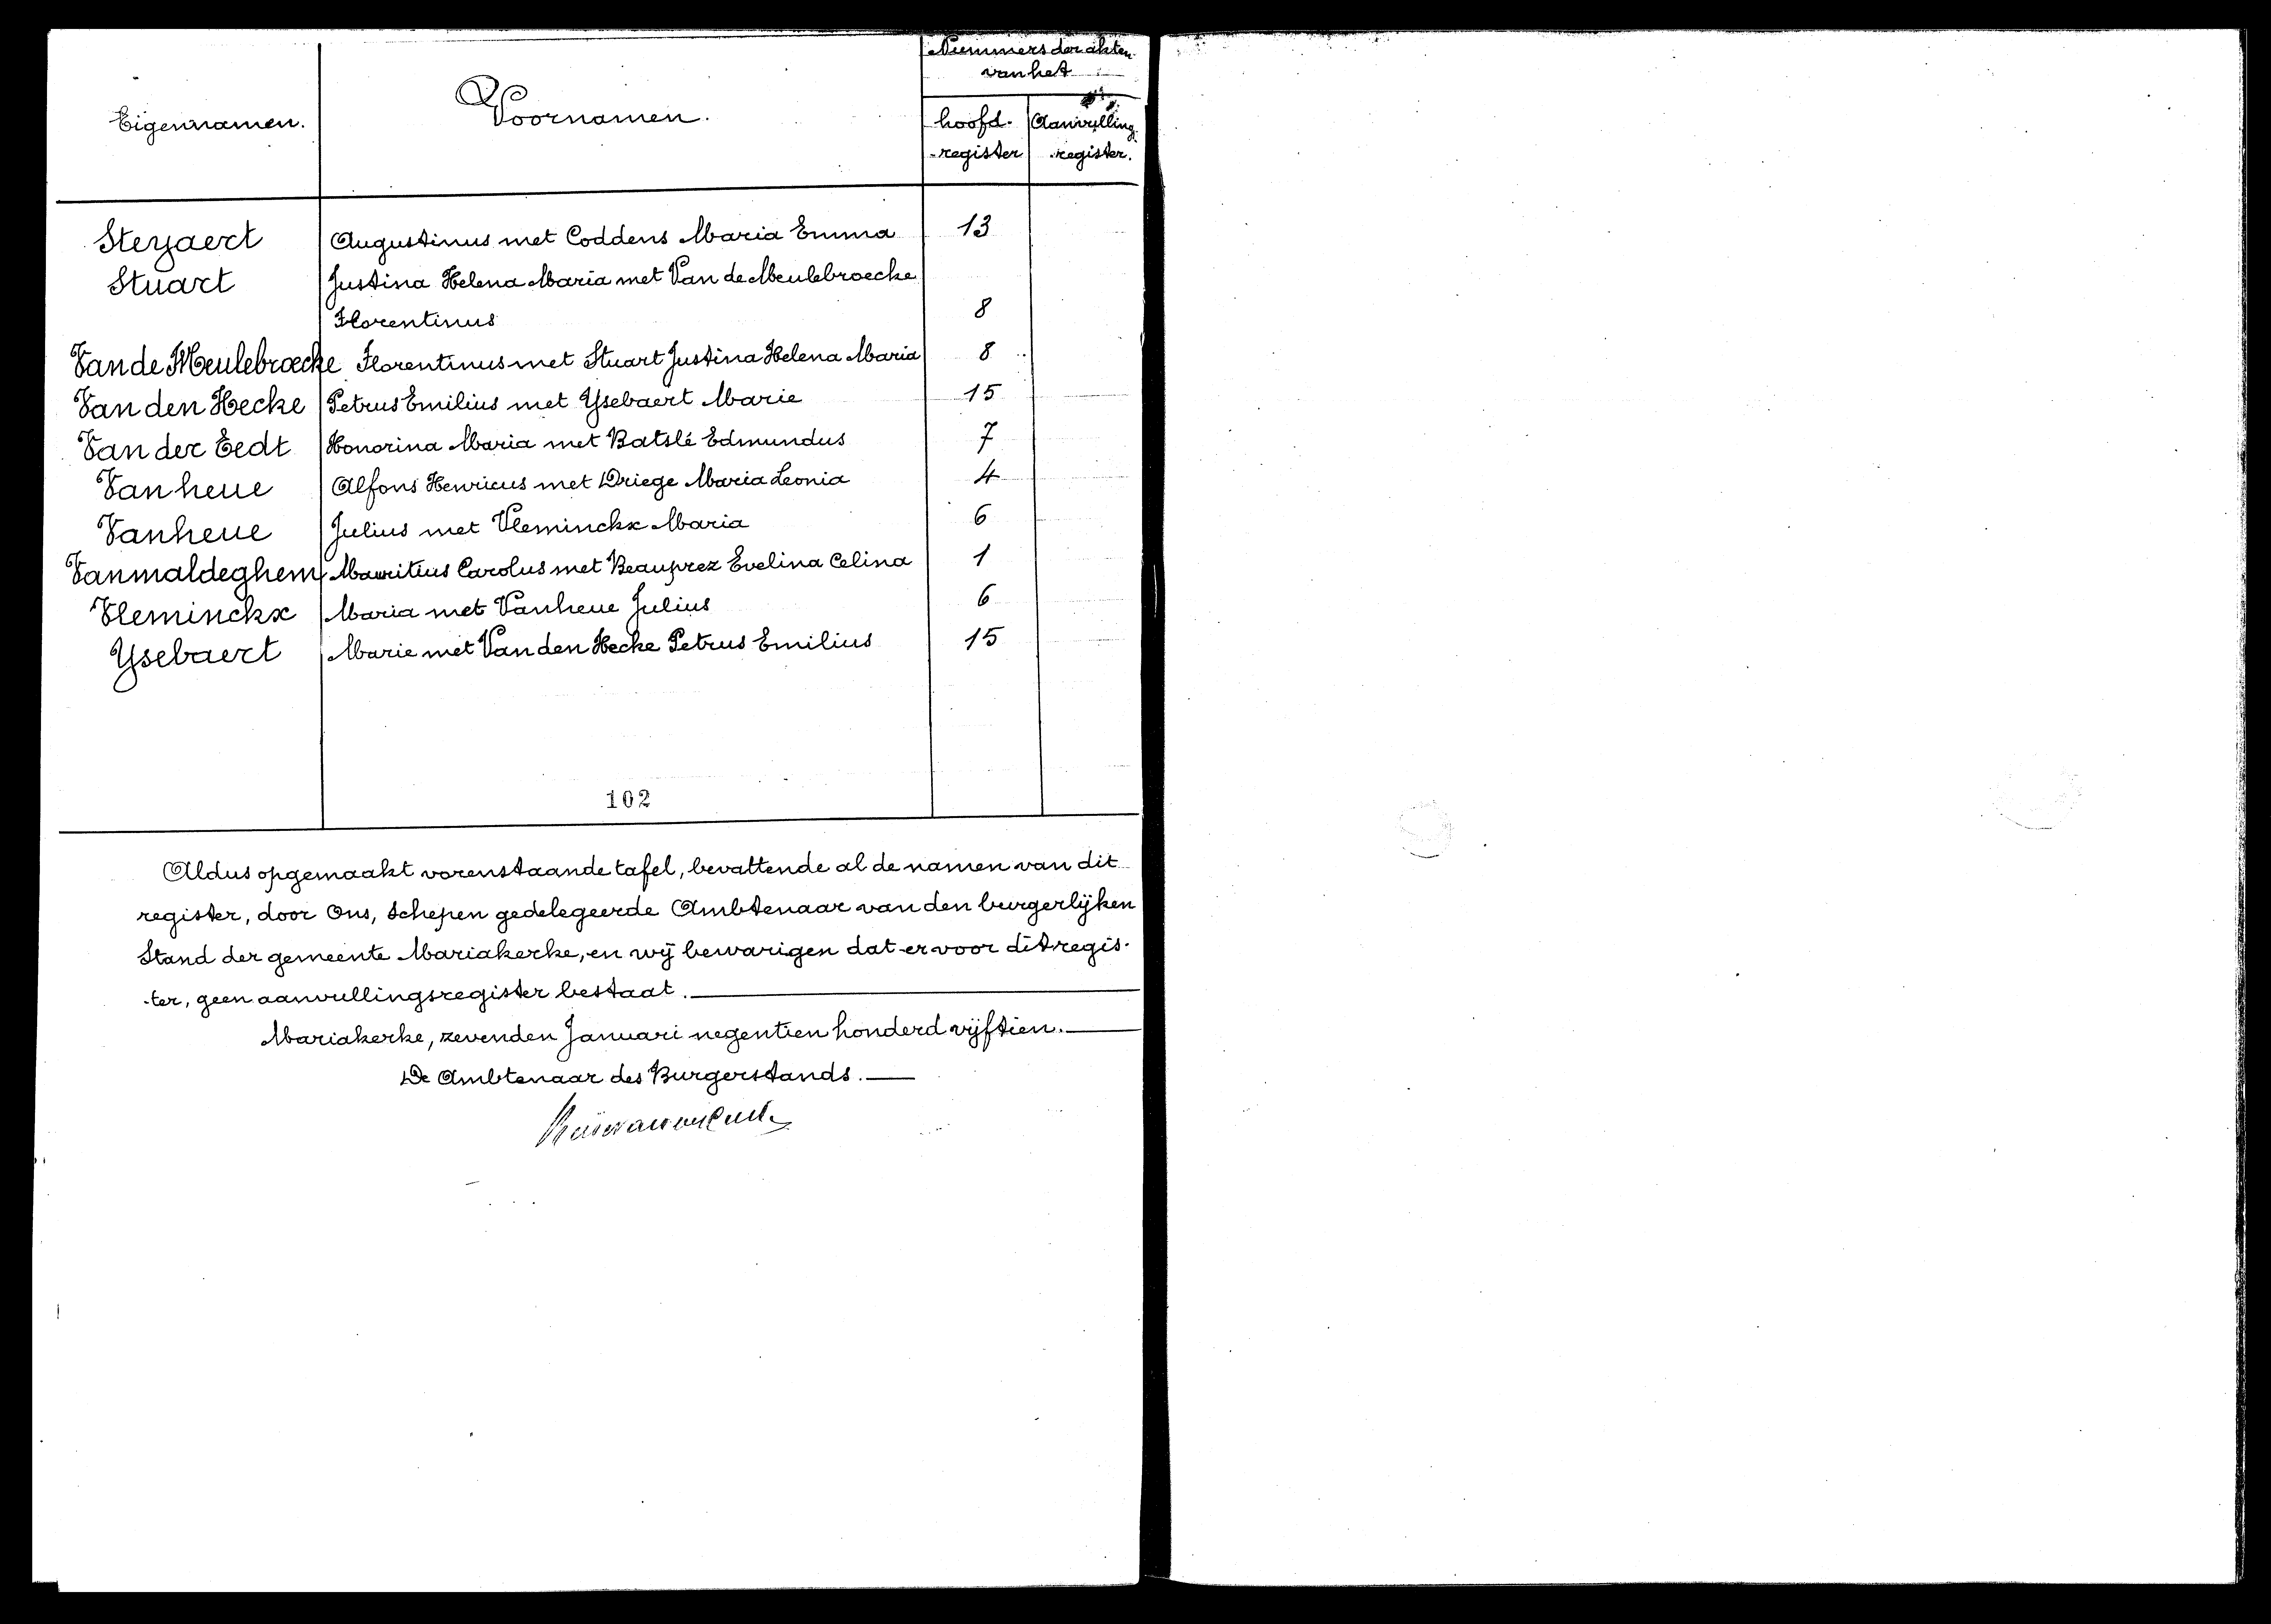 Nummers der akten
van het
Eigennamen.
Voornamen.
hoofd-
-register
Aanvulling-
-register.
Steyaert Augustinus met Coddens Maria Emma 13
Stuart Justina Helena Maria met Van de Meulebroecke
Florentinus 8
Van de Meulebroecke Florentinus met Stuart Justina Helena Maria 8
Van den Hecke Petrus Emilius met Ysebaert Marie 15
Van der Eedt Honorina Maria met Batslé Edmundus 7
Vanheue Alfons Henricus met Driege Maria Leonia 4
Vanheue Julius met Vleminckx Maria 6
Vanmaldeghem Mauritius Carolus met Beauprez Evelina Celina 1
Vleminckx Maria met Vanheue Julius 6
Ysebaert Marie met Van den Hecke Petrus Emilius 15
102
Aldus opgemaakt vorenstaande tafel, bevattende al de namen van dit
register, door Ons, Schepen gedelegeerde Ambtenaar van den burgerlijken
Stand der gemeente Mariakerke, en wij bewarigen dat er voor dit regis-
-ter, geen aanvullingsregister bestaat.
Mariakerke, zevenden Januari negentien honderd vijftien.
De Ambtenaar des Burgerstands.